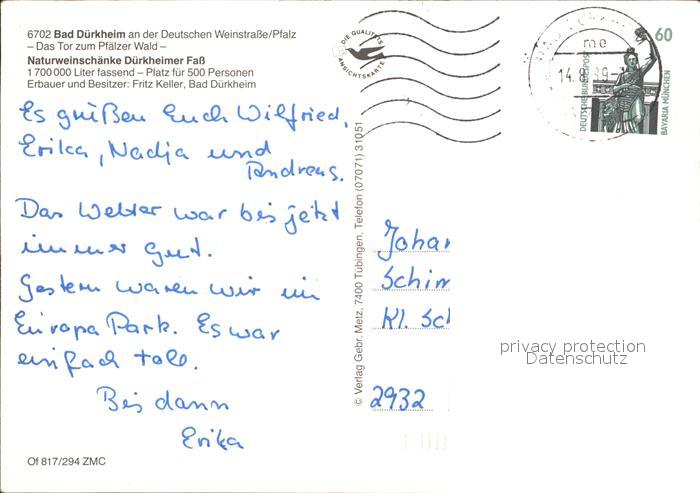 6702 Bad Dürkheim an der Deutschen Weinstraße/Pfalz
– Das Tor zum Pfälzer Wald –
Naturweinschänke Dürkheimer Faß
1 700 000 Liter fassend – Platz für 500 Personen
Erbauer und Besitzer: Fritz Keller, Bad Dürkheim
Es grüßen Euch Wilfried,
Erika, Nadja und
Andreas.
Das Wetter war bis jetzt
immer gut.
Gestern waren wir im
Europa Park. Es war
einfach toll.
Bis dann
Erika
Of 817/294 ZMC
© Verlag Gebr. Metz, 7400 Tübingen, Telefon (07071) 31051
DIE QUALITÄTS
ANSICHTSKARTE
14.8.89
me
60
DEUTSCHE BUNDESPOST
BAVARIA MÜNCHEN
Johan
Schim
Kl. Sc
2932
privacy protection
Datenschutz